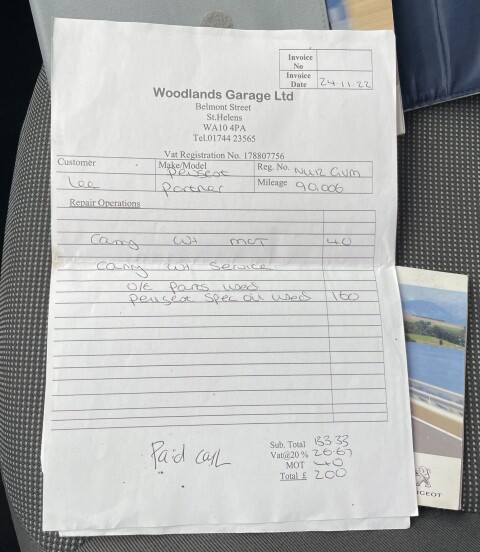 Invoice
No
Invoice
Date 24.11.22
Woodlands Garage Ltd
Belmont Street
St.Helens
WA10 4PA
Tel.01744 23565
Vat Registration No. 178807756
Customer Make/Model Peugeot Reg. No.
Lee Partner Mileage 90,006
Repair Operations
Carry out MOT 40
Carry out Service
O/E Parts used
Peugeot Spec oil used 160
Sub. Total 133.33
Paid Vat@20 % 26.67
MOT 40
Total £ 200
UGEOT